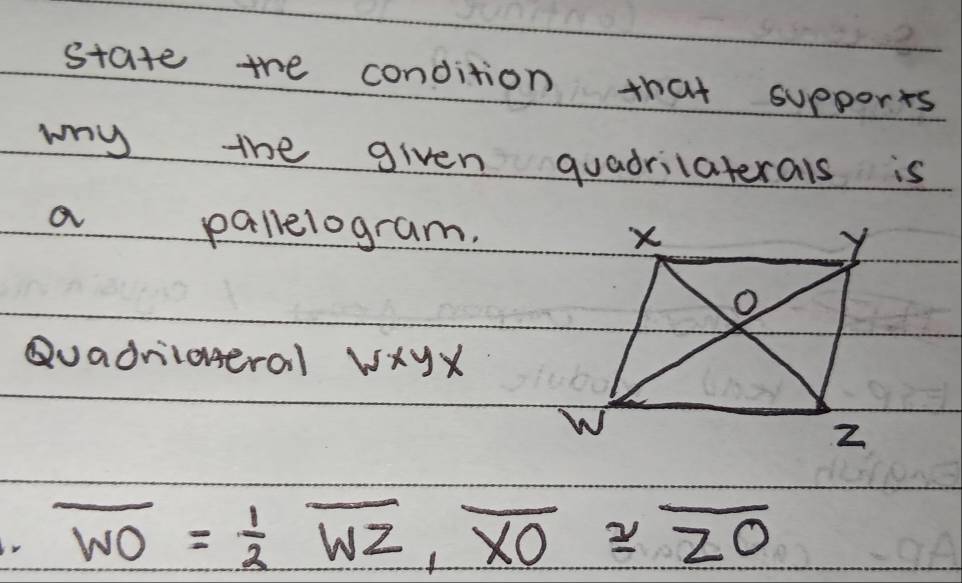 state the condition that supports
why the given quadrilaterals is
a pallelogram.
X Y
O
Quadrilateral WXYX
W Z
1. WO = 1/2 WZ, XO ≅ ZO